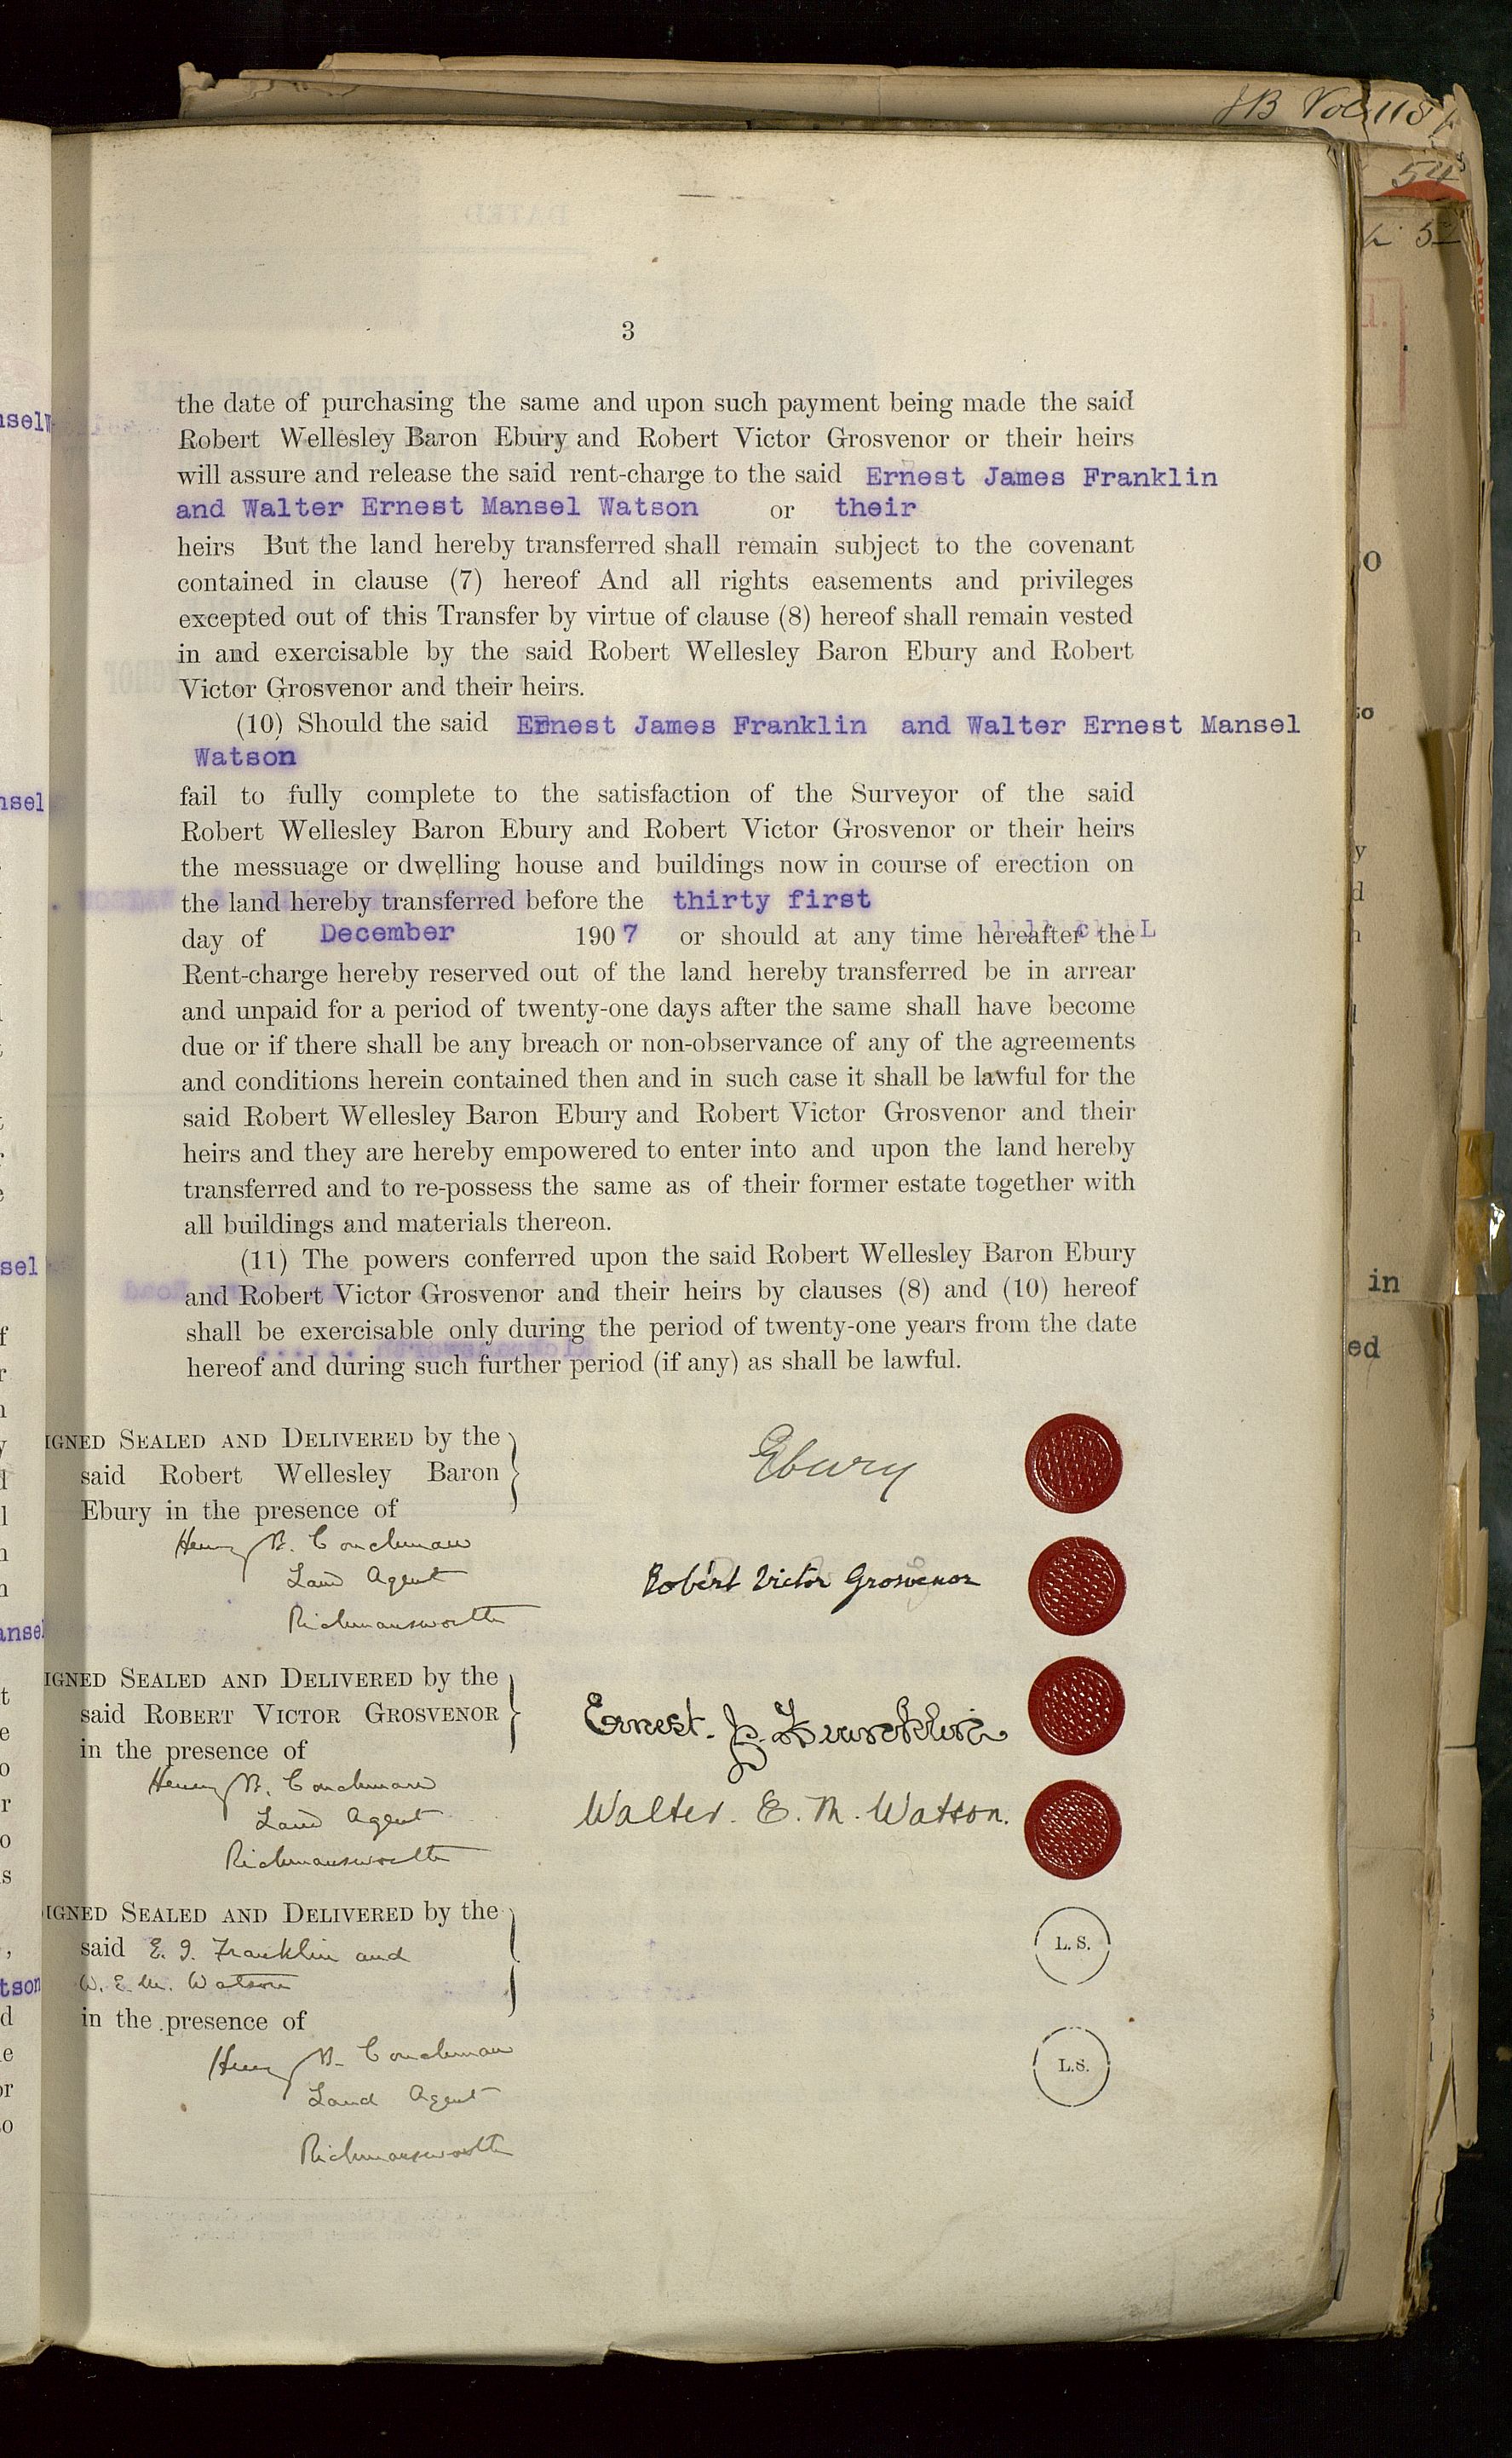 JB Vol 118
54
3
the date of purchasing the same and upon such payment being made the said
Robert Wellesley Baron Ebury and Robert Victor Grosvenor or their heirs
will assure and release the said rent-charge to the said Ernest James Franklin
and Walter Ernest Mansel Watson or their
heirs But the land hereby transferred shall remain subject to the covenant
contained in clause (7) hereof And all rights easements and privileges
excepted out of this Transfer by virtue of clause (8) hereof shall remain vested
in and exercisable by the said Robert Wellesley Baron Ebury and Robert
Victor Grosvenor and their heirs.
(10) Should the said Ernest James Franklin and Walter Ernest Mansel
Watson
fail to fully complete to the satisfaction of the Surveyor of the said
Robert Wellesley Baron Ebury and Robert Victor Grosvenor or their heirs
the messuage or dwelling house and buildings now in course of erection on
the land hereby transferred before the thirty first
day of December 1907 or should at any time hereafter the
Rent-charge hereby reserved out of the land hereby transferred be in arrear
and unpaid for a period of twenty-one days after the same shall have become
due or if there shall be any breach or non-observance of any of the agreements
and conditions herein contained then and in such case it shall be lawful for the
said Robert Wellesley Baron Ebury and Robert Victor Grosvenor and their
heirs and they are hereby empowered to enter into and upon the land hereby
transferred and to re-possess the same as of their former estate together with
all buildings and materials thereon.
(11) The powers conferred upon the said Robert Wellesley Baron Ebury
and Robert Victor Grosvenor and their heirs by clauses (8) and (10) hereof
shall be exercisable only during the period of twenty-one years from the date
hereof and during such further period (if any) as shall be lawful.
IGNED SEALED AND DELIVERED by the
said Robert Wellesley Baron
Ebury in the presence of
Ebury
Henry B. Couchman
Land Agent
Rickmansworth
Robert Victor Grosvenor
IGNED SEALED AND DELIVERED by the
said ROBERT VICTOR GROSVENOR
in the presence of
Ernest. J. Franklin
Henry B. Couchman
Land Agent
Rickmansworth
Walter. E. M. Watson.
IGNED SEALED AND DELIVERED by the
said E. J. Franklin and
W. E. M. Watson
in the presence of
L. S.
Henry B. Couchman
Land Agent
Rickmansworth
L.S.